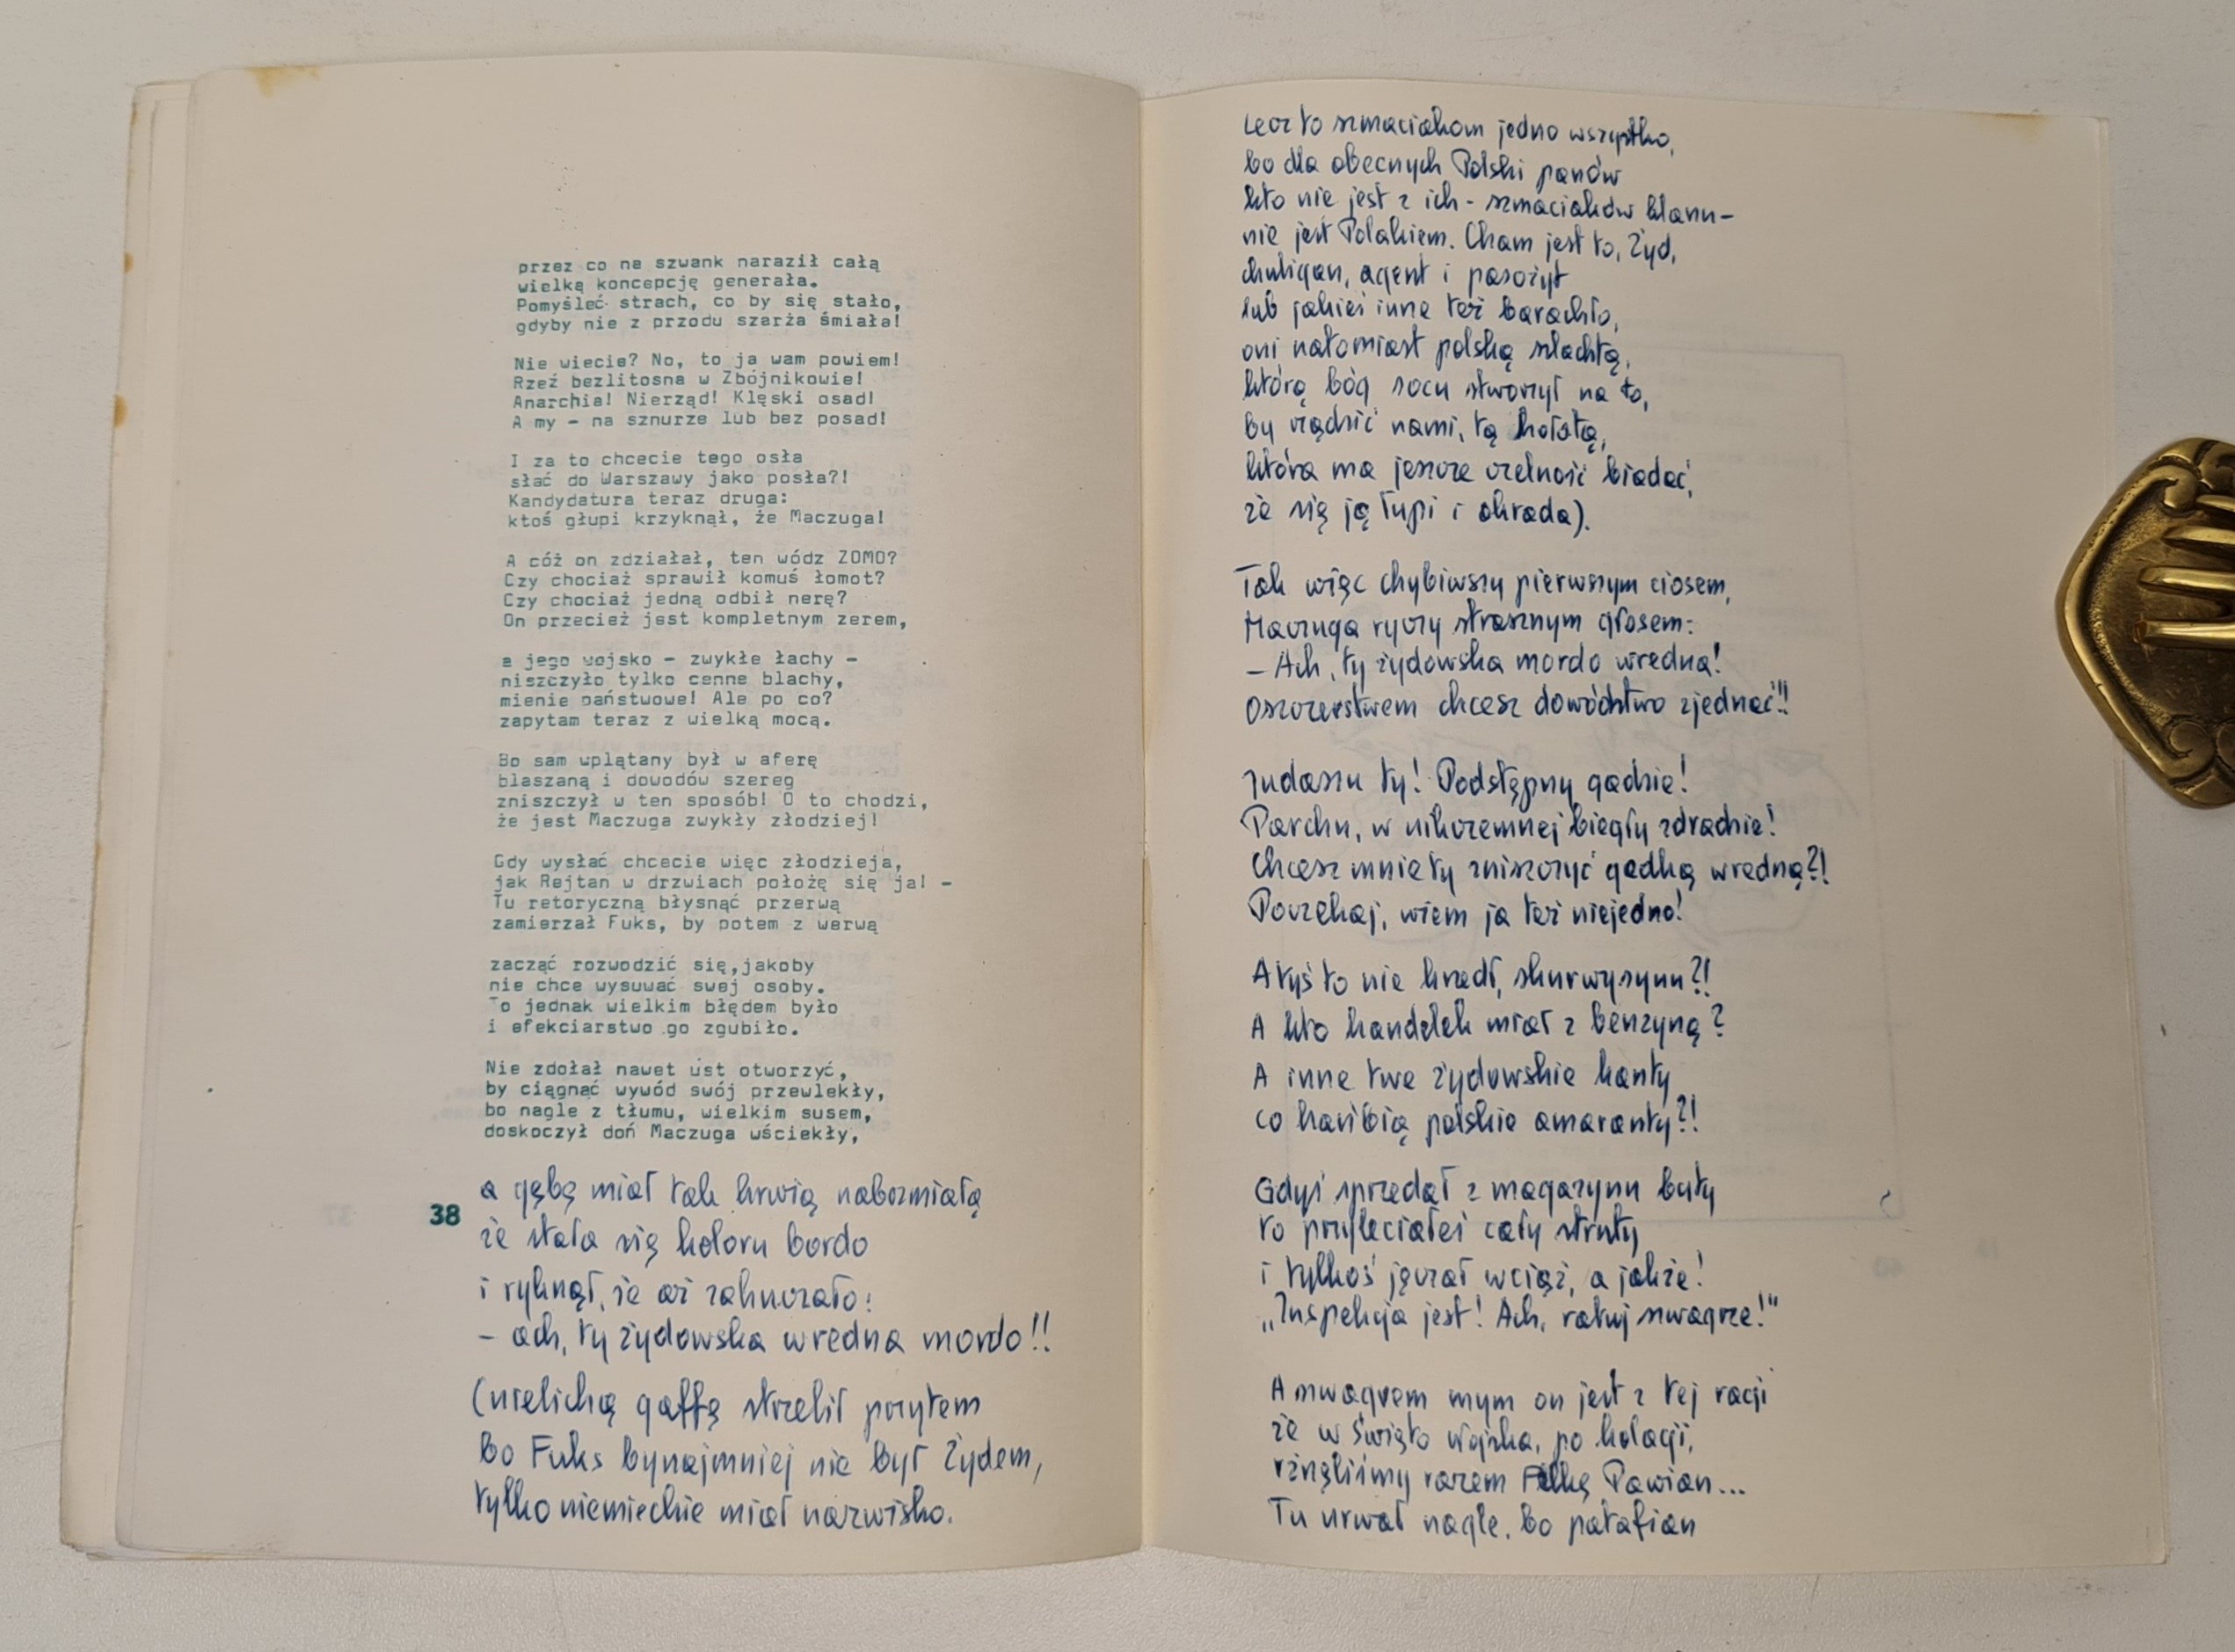 przez co na szwank naraził całą
wielką koncepcję generała.
Pomyśleć strach, co by się stało,
gdyby nie z przodu szarża śmiała!
Nie wiecie? No, to ja wam powiem!
Rzeź bezlitosna w Zbójnikowie!
Anarchia! Nierząd! Klęski osad!
A my - na sznurze lub bez posad!
I za to chcecie tego osła
słać do Warszawy jako posła?!
Kandydatura teraz druga:
ktoś głupi krzyknął, że Maczuga!
A cóż on zdziałał, ten wódz ZOMO?
Czy chociaż sprawił komuś łomot?
Czy chociaż jedną odbił nerę?
On przecież jest kompletnym zerem,
a jego wojsko - zwykłe łachy -
niszczyło tylko cenne blachy,
mienie państwowe! Ale po co?
zapytam teraz z wielką mocą.
Bo sam wplątany był w aferę
blaszaną i dowodów szereg
zniszczył w ten sposób! O to chodzi,
że jest Maczuga zwykły złodziej!
Gdy wysłać chcecie więc złodzieja,
jak Rejtan w drzwiach położę się ja! -
Tu retoryczną błysnąć przerwą
zamierzał Fuks, by potem z werwą
zacząć rozwodzić się,jakoby
nie chce wysuwać swej osoby.
To jednak wielkim błędem było
i efekciarstwo go zgubiło.
Nie zdołał nawet ust otworzyć,
by ciągnąć wywód swój przewlekły,
bo nagle z tłumu, wielkim susem,
doskoczył doń Maczuga wściekły,
a gębę miał tak krwią nabrzmiałą
38
że stała się koloru bordo
i ryknął, że aż zahuczało:
- ach, ty żydowska wredna mordo!!
(wielichą gaffę strzelił przytem
bo Fuks bynajmniej nie był Żydem,
tylko niemieckie miał nazwisko.
Lecz to szmaciakom jedno wszystko,
bo dla obecnych Polski panów
kto nie jest z ich - szmaciaków klanu-
nie jest Polakiem. Cham jest to, Żyd,
chuligan, agent i pasożyt
lub jakieś inne też barachło,
oni natomiast polską szlachtą,
którą bóg socu stworzył na to,
by rządzić nami, tą hołotą,
która ma jeszcze czelność biadać,
że się ją łupi i okrada).
Tak więc chybiwszy pierwszym ciosem,
Maczuga ryczy strasznym głosem:
- Ach, ty żydowska mordo wredna!
Oszczerstwem chcesz dowództwo zjednać!!
Judaszu ty! Podstępny gadzie!
Parchu, w nikczemnej biegły zdradzie!
Chcesz mnie ty zniszczyć gadką wredną?!
Poczekaj, wiem ja też niejedno!
A tyś to nie kradł, skurwysynu?!
A kto handelek miał z benzyną?
A inne twe żydowskie kanty
co hańbią polskie amaranty?!
Gdyś sprzedał z magazynu buty
to przyleciałeś cały struty
i tylkoś jęczał wciąż, a jakże!
„Inspekcja jest! Ach, ratuj szwagrze!"
A szwagrem mym on jest z tej racji
że w święto Wojska, po kolacji,
rżnęliśmy razem Felkę Pawian...
Tu urwał nagle, bo patafian